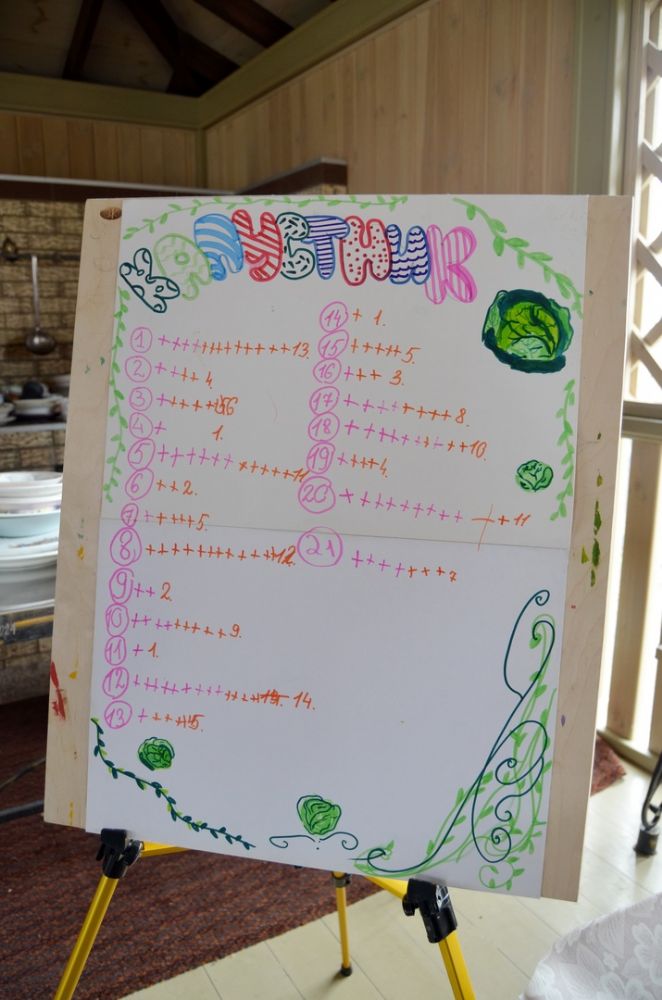 КАПУСТНИК
1 +++++++++++++ 13.
2 ++++ 4.
3 ++++++ 6
4 + 1.
5 +++++++++++ 11
6 ++ 2.
7 +++++ 5.
8 ++++++++++++ 12.
9 ++ 2.
10 +++++++++ 9.
11 + 1.
12 ++++++++++++++ 14.
13 +++++ 5.
14 + 1.
15 +++++ 5.
16 +++ 3.
17 ++++++++ 8.
18 ++++++++++ 10.
19 ++++ 4.
20 +++++++++++ 11
21 +++++++ 7